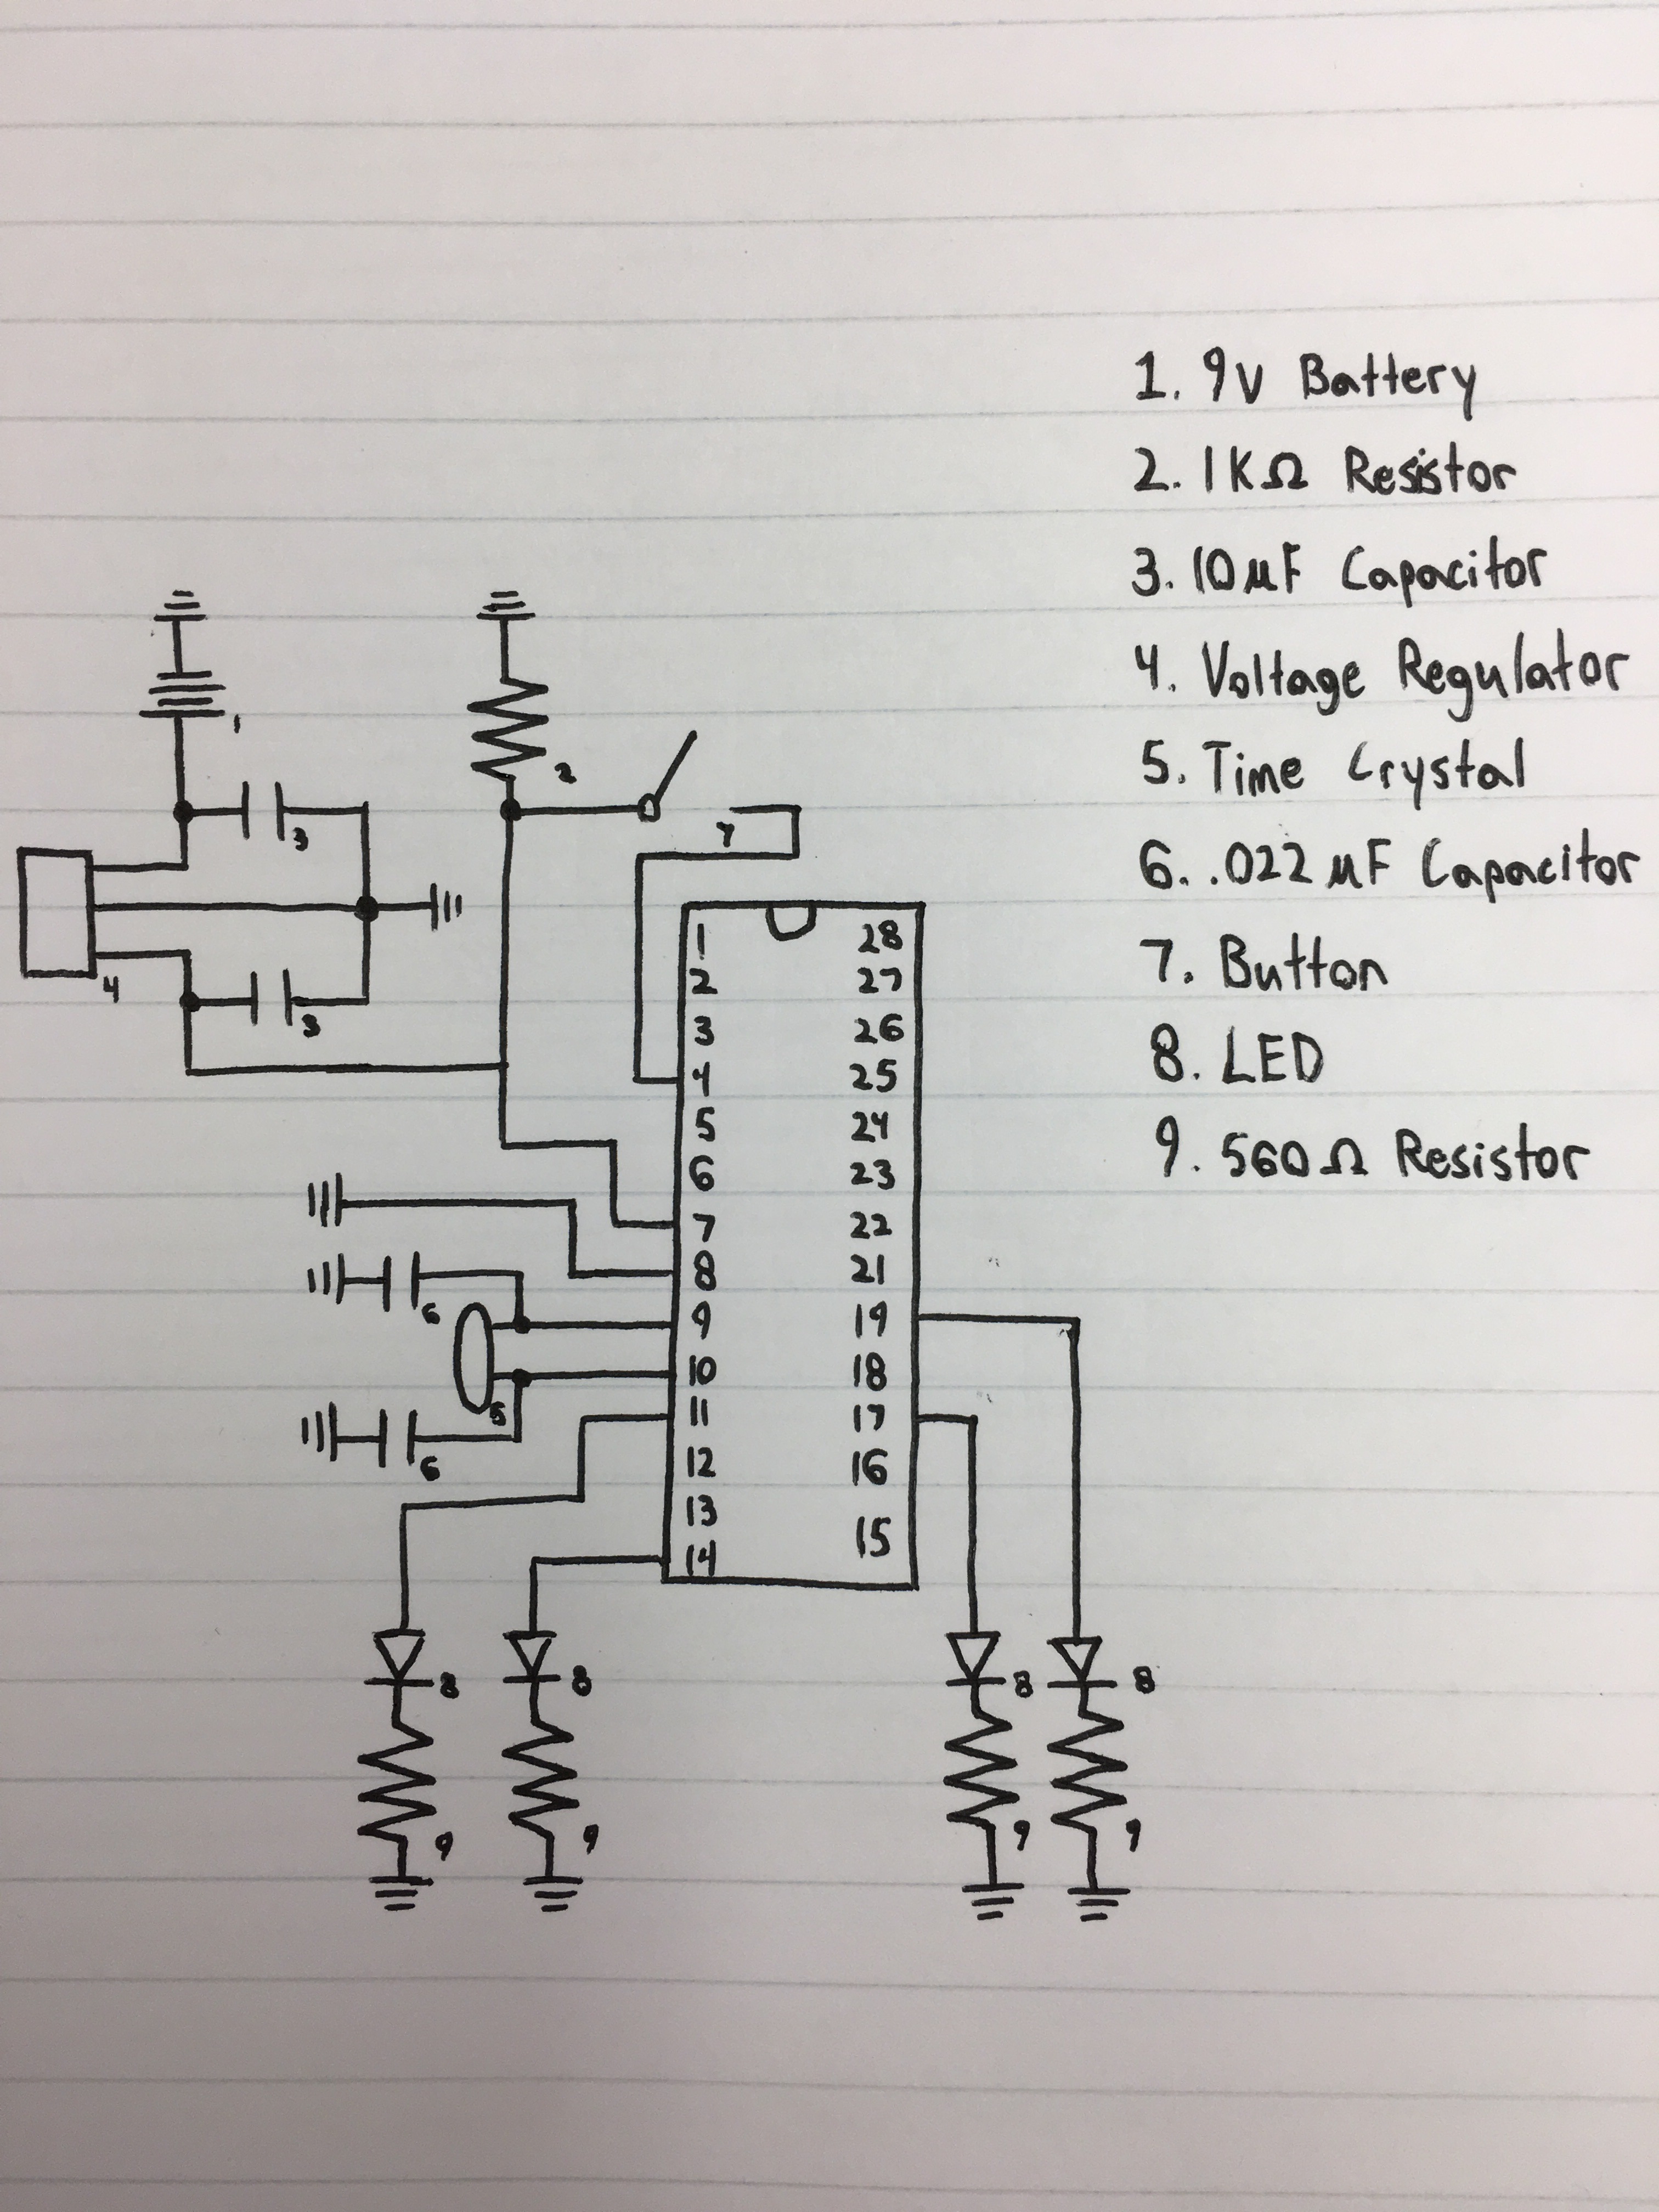 1. 9V Battery
2. 1KΩ Resistor
3. 10µF Capacitor
4. Voltage Regulator
5. Time Crystal
6. .022µF Capacitor
7. Button
8. LED
9. 560Ω Resistor
1
2
3
7
4
3
1 28
2 27
3 26
4 25
5 24
6 23
7 22
8 21
9 19
10 18
11 17
12 16
13 15
14
6
5
6
8 8 8 8
9 9 9 9